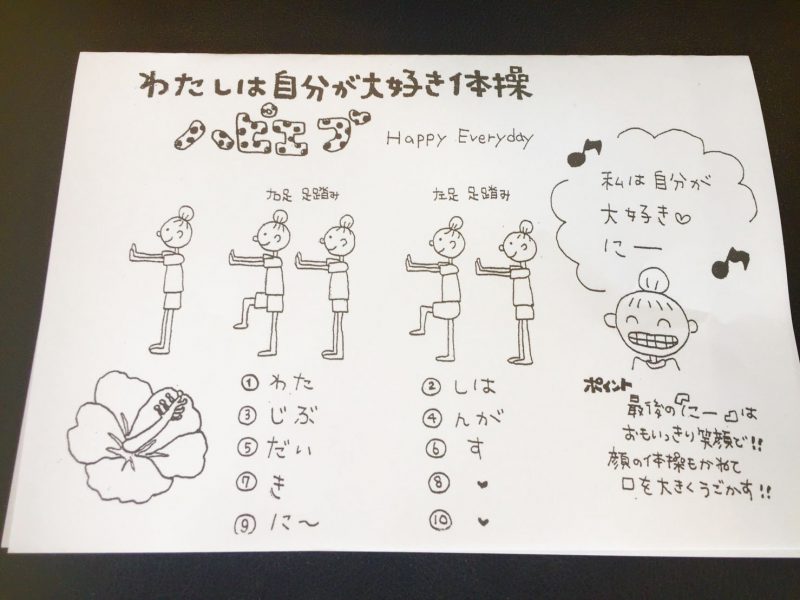 わたしは自分が大好き体操
ハッピエブ Happy Everyday
右足 足踏み 左足 足踏み
私は自分が
大好き♡
にー
① わた ② しは
③ じぶ ④ んが
⑤ だい ⑥ す
⑦ き ⑧ ♥
⑨ に〜 ⑩ ♥
ポイント
最後の『にー』は
おもいっきり笑顔で!!
顔の体操もかねて
口を大きくうごかす!!